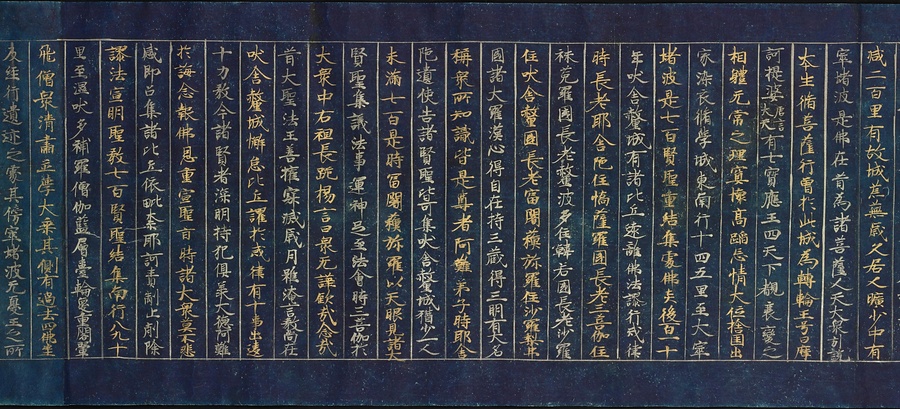 減二百里有故城荒蕪歲久居人曠少中有
窣堵波是佛在昔為諸菩薩人天大衆引說
本生脩菩薩行曾於此城為轉輪王号曰摩
訶提婆唐言大天有七寶應王四天下覩衰變之
相體无常之理冥懷高蹈忘情大位捨國出
家染衣脩學城東南行十四五里至大窣
堵波是七百賢聖重結集處佛去後百一十
年吠舍釐城有諸比丘遠離佛法謬行戒律
時長老耶舍陁住憍薩羅國長老三菩伽住
秣菟羅國長老釐波多住韓若國長老沙羅
住吠舍釐國長老富闍蘇弥羅住沙羅梨弗
國諸大羅漢心得自在持三藏得三明有大名
稱衆所知識皆是尊者阿難弟子時耶舍
陁遣使告諸賢聖皆可集吠舍釐城猶少一人
未滿七百是時富闍蘇弥羅以天眼見諸大
賢聖集議法事運神足至法會時三菩伽於
大衆中右袒長跪揚言曰衆无譁欽哉念哉
昔大聖法王善權寂滅歲月雖淹言教尚在
吠舍釐城懈怠比丘謬於戒律有十事出違
十力教今諸賢者深明持犯俱承大德阿難
指誨念報佛恩重宣聖旨時諸大衆莫不悲
感即召集諸比丘依毗奈耶訶責制止削除
謬法宣明聖教七百賢聖結集南行八九十
里至濕吠多補羅僧伽藍層臺輪奐重閣翬
飛僧衆清肅並學大乘其側有過去四佛坐
及經行遺迹之處其傍窣堵波无憂王之所